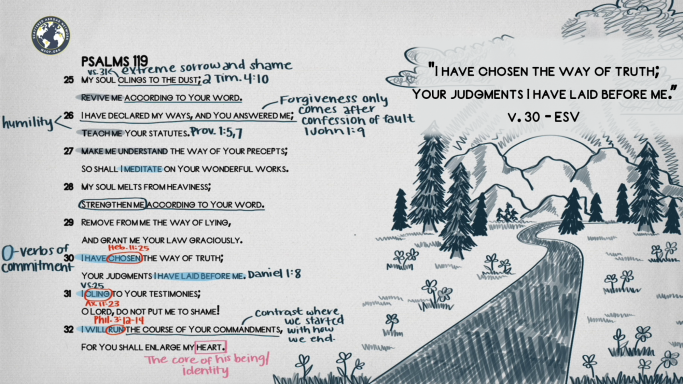 PSALMS 119
vs. 31
extreme sorrow and shame
25 MY SOUL CLINGS TO THE DUST; 2 Tim. 4:10
REVIVE ME ACCORDING TO YOUR WORD.
Forgiveness only
comes after
confession of fault
1 John 1:9
humility
26 I HAVE DECLARED MY WAYS, AND YOU ANSWERED ME;
TEACH ME YOUR STATUTES. Prov. 1:5,7
27 MAKE ME UNDERSTAND THE WAY OF YOUR PRECEPTS;
SO SHALL I MEDITATE ON YOUR WONDERFUL WORKS.
28 MY SOUL MELTS FROM HEAVINESS;
STRENGTHEN ME ACCORDING TO YOUR WORD.
29 REMOVE FROM ME THE WAY OF LYING,
AND GRANT ME YOUR LAW GRACIOUSLY.
O-verbs of
commitment
Heb. 11:25
30 I HAVE CHOSEN THE WAY OF TRUTH;
YOUR JUDGMENTS I HAVE LAID BEFORE ME. Daniel 1:8
VS:25
31 I CLING TO YOUR TESTIMONIES;
11:23
O LORD, DO NOT PUT ME TO SHAME!
Phil. 3:12-14
32 I WILL RUN THE COURSE OF YOUR COMMANDMENTS,
contrast where
we started
with how
we end.
FOR YOU SHALL ENLARGE MY HEART.
The core of his being/
identity
"I HAVE CHOSEN THE WAY OF TRUTH;
YOUR JUDGMENTS I HAVE LAID BEFORE ME."
V. 30 - ESV